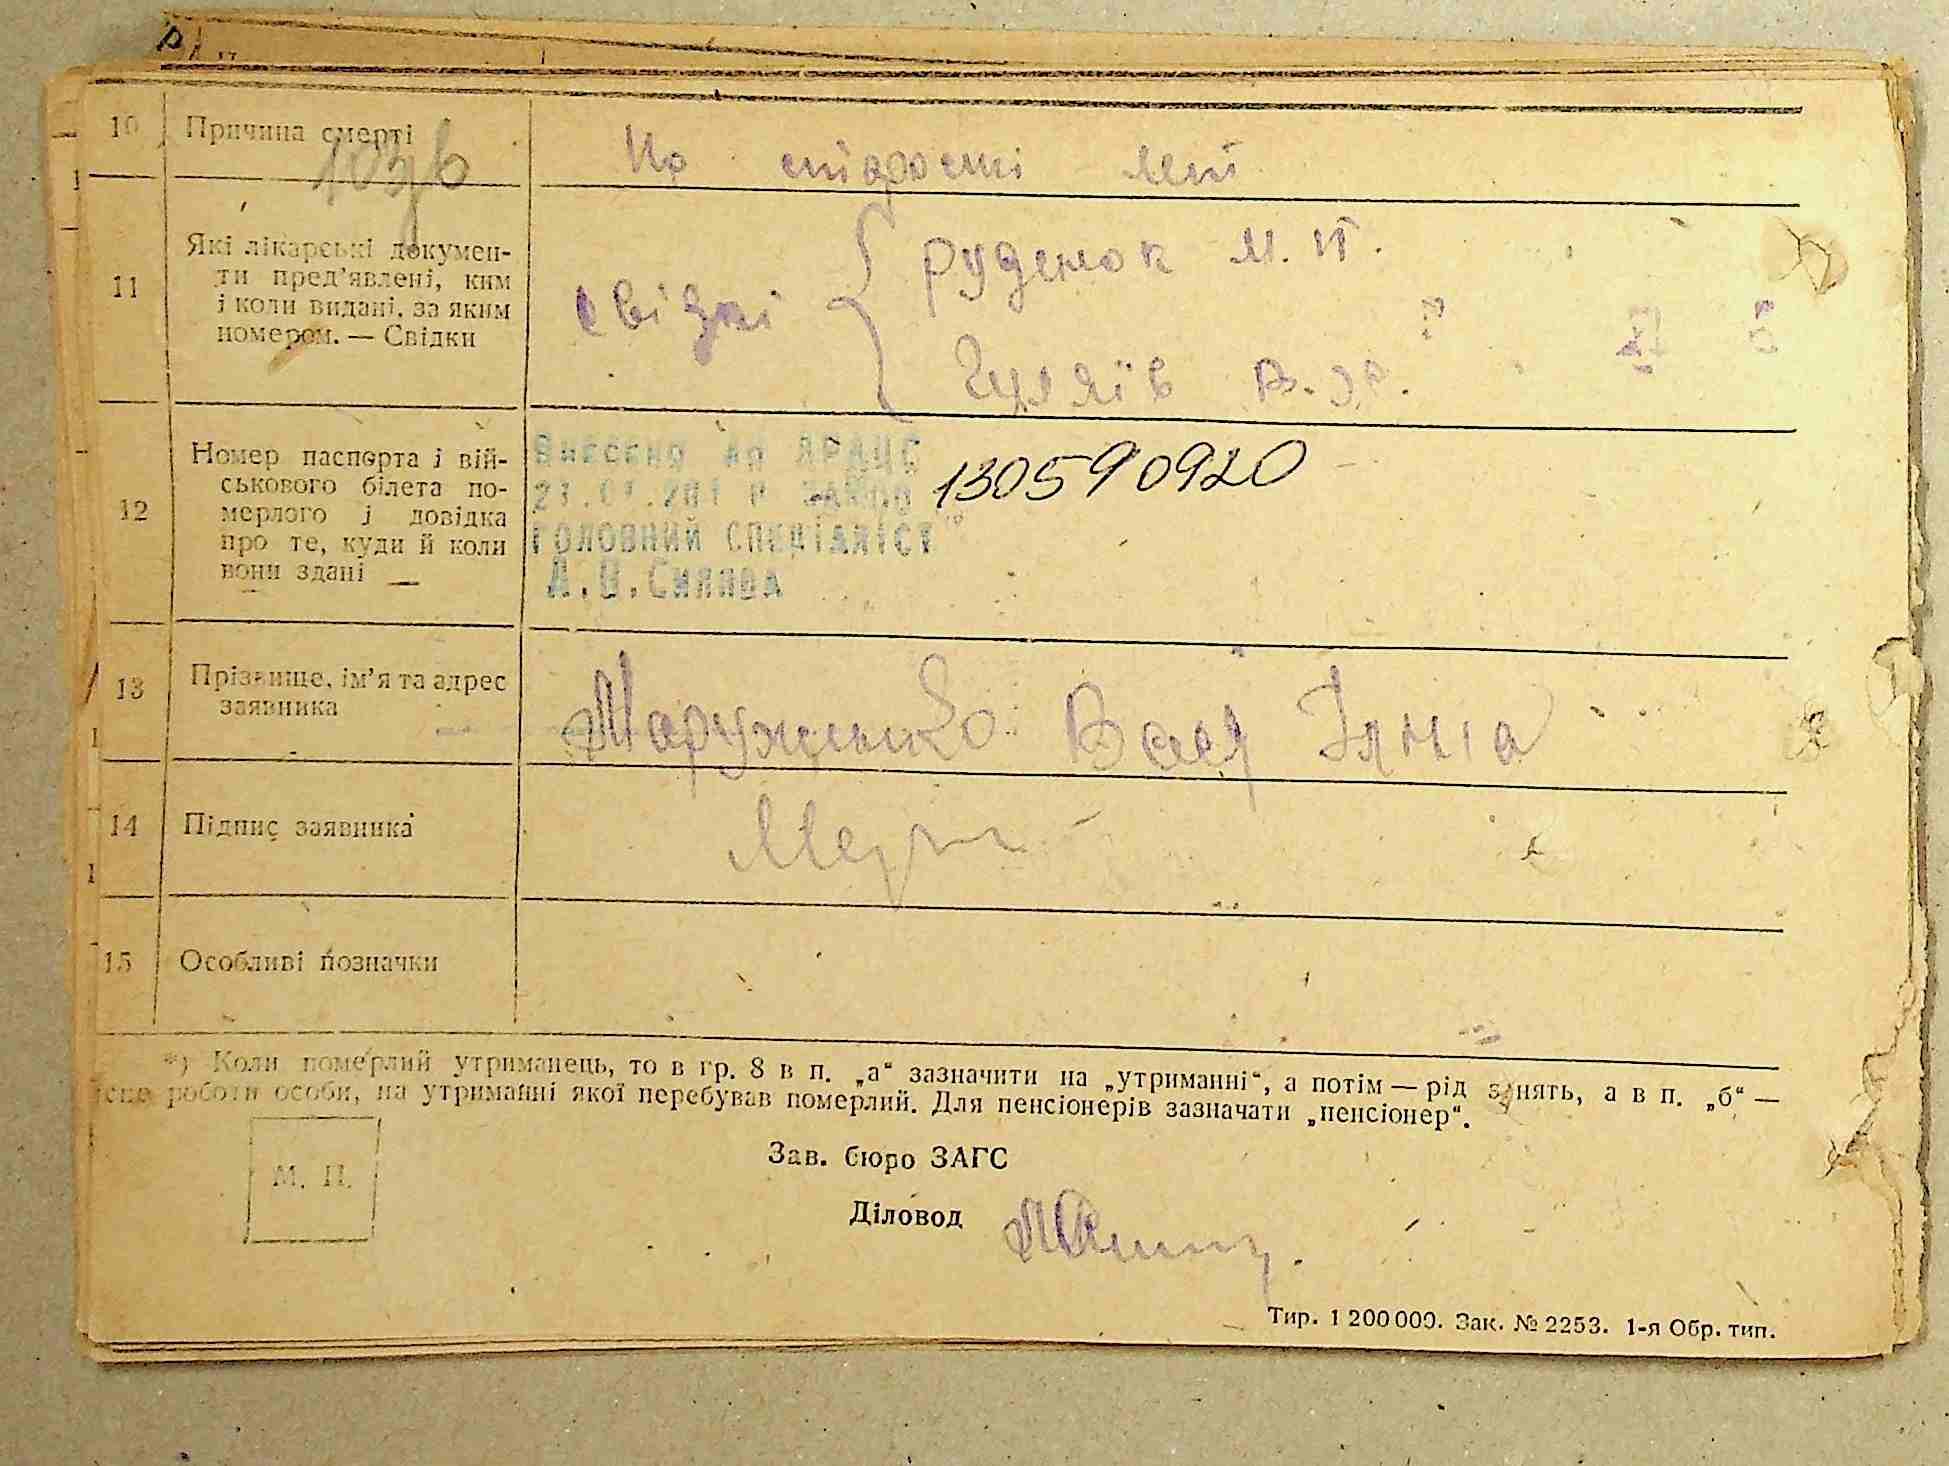 10 Причина смерті
По старості літ
11 Які лікарські докумен-
ти пред'явлені, ким
і коли видані, за яким
номером. — Свідки
свідки
Руденок М. П.
Гуляїв В.
12 Номер паспорта і вій-
ськового білета по-
мерлого і довідка
про те, куди й коли
вони здані —
Внесено до ДРАЦС
ГОЛОВНИЙ СПЕЦІАЛІСТ
130590920
13 Прізвище, ім'я та адрес
заявника
14 Підпис заявника
15 Особливі позначки
*) Коли померлий утриманець, то в гр. 8 в п. „а“ зазначити на „утриманні“, а потім — рід занять, а в п. „б“ —
роботи особи, на утриманні якої перебував померлий. Для пенсіонерів зазначати „пенсіонер“.
М. П.
Зав. бюро ЗАГС
Діловод
Тир. 1 200 000. Зак. № 2253. 1-я Обр. тип.